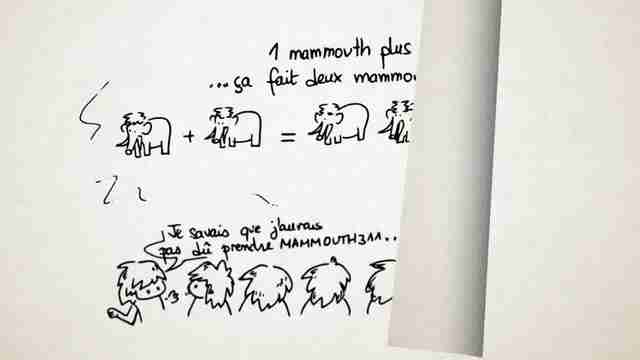 1 mammouth plus
...ça fait deux mammou
+ =
Je savais que j'aurais
pas dû prendre MAMMOUTH311..